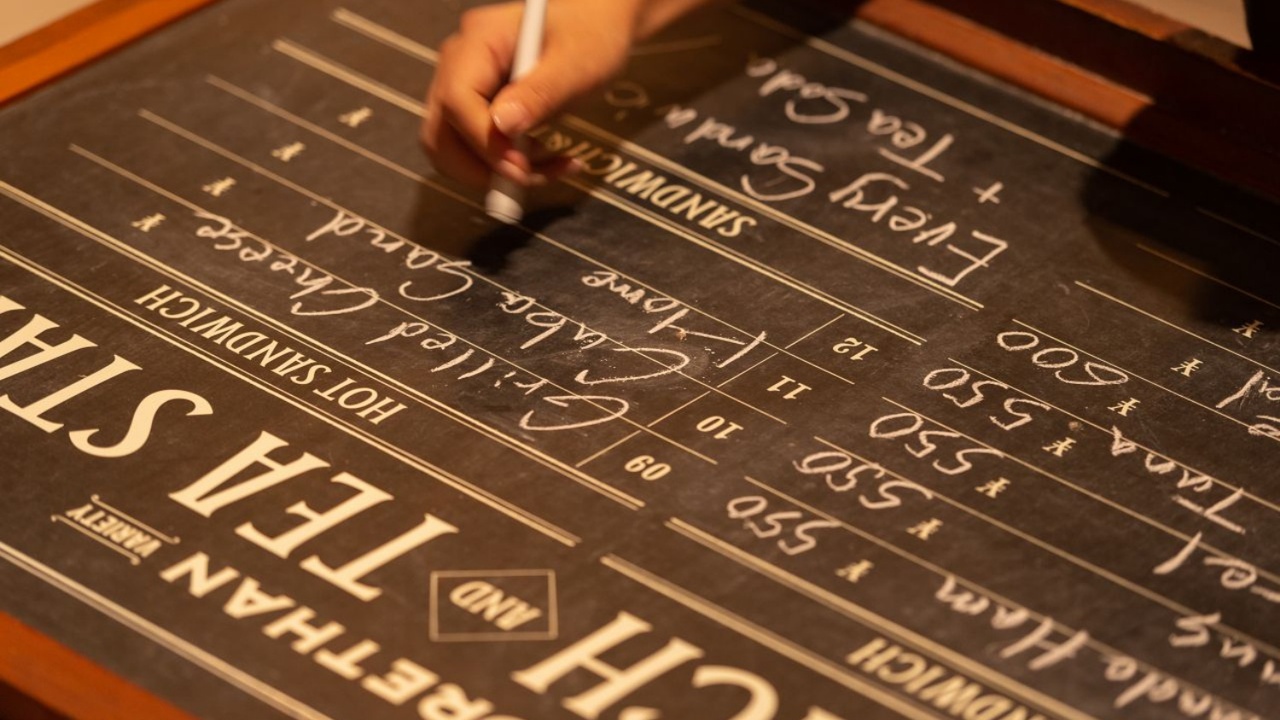 ORETHAN VARIETY
CH AND TEA STA
NDWICH
Ham ¥ 550
¥ 550
¥ 550
Tuna ¥ 550
¥ 600
¥
¥
HOT SANDWICH
09 Grilled Cheese ¥
10 Cuba Sand ¥
11 Home ¥
12 ¥
SANDWICH &
Every Sand
+ Tea Soda